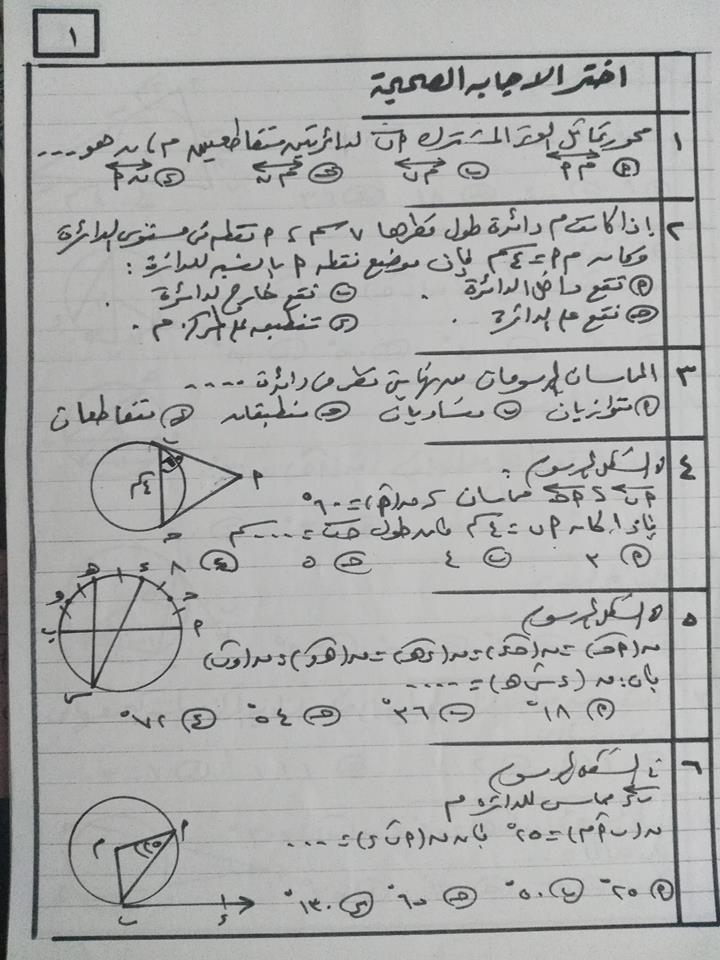 ١
اختر الاجابه الصحيحة
١ محور تماثل الوتر المشترك أب لدائرتين متقاطعتين م ، ن هو ...
أ م أ ب م ب ج م ن د ن أ
٢ إذا كانت م دائرة طول قطرها ٧ سم ، أ نقطة فى مستوى الدائرة
وكان م أ = ٤ سم فإن موضع نقطة أ بالنسبه للدائرة :
أ تقع داخل الدائرة . ب تقع خارج الدائرة .
ج تقع على الدائرة . د تنطبق على المركز م .
٣ المماسان المرسومان من نهايتى قطر فى دائرة ....
أ متوازيان ب متساويان ج منطبقان د متقاطعان
٤ فى الشكل المرسوم :
أب ، أج مماسان ، ن (أ) = ٦٠°
فإذا كان أب = ٤ سم فإن طول جب = .... سم
أ ٣ ب ٤ ج ٥ د ٨
ب ٤سم أ ج
٥ فى الشكل المرسوم
ن (أج) = ن (جد) = ن (دهـ) = ن (هـو) = ن (وب)
فإن : ن (د س هـ) = ....
أ ١٨° ب ٣٦° ج ٥٤° د ٧٢°
هـ د و ج ب أ س
٦ فى الشكل المرسوم
ب د مماس للدائرة م
ن (ب أ م) = ٢٥° فإن ن (أ ب د) = ...
أ ٢٥° ب ٥٠° ج ٦٥° د ١٣٠°
م ٢٥ أ ب د